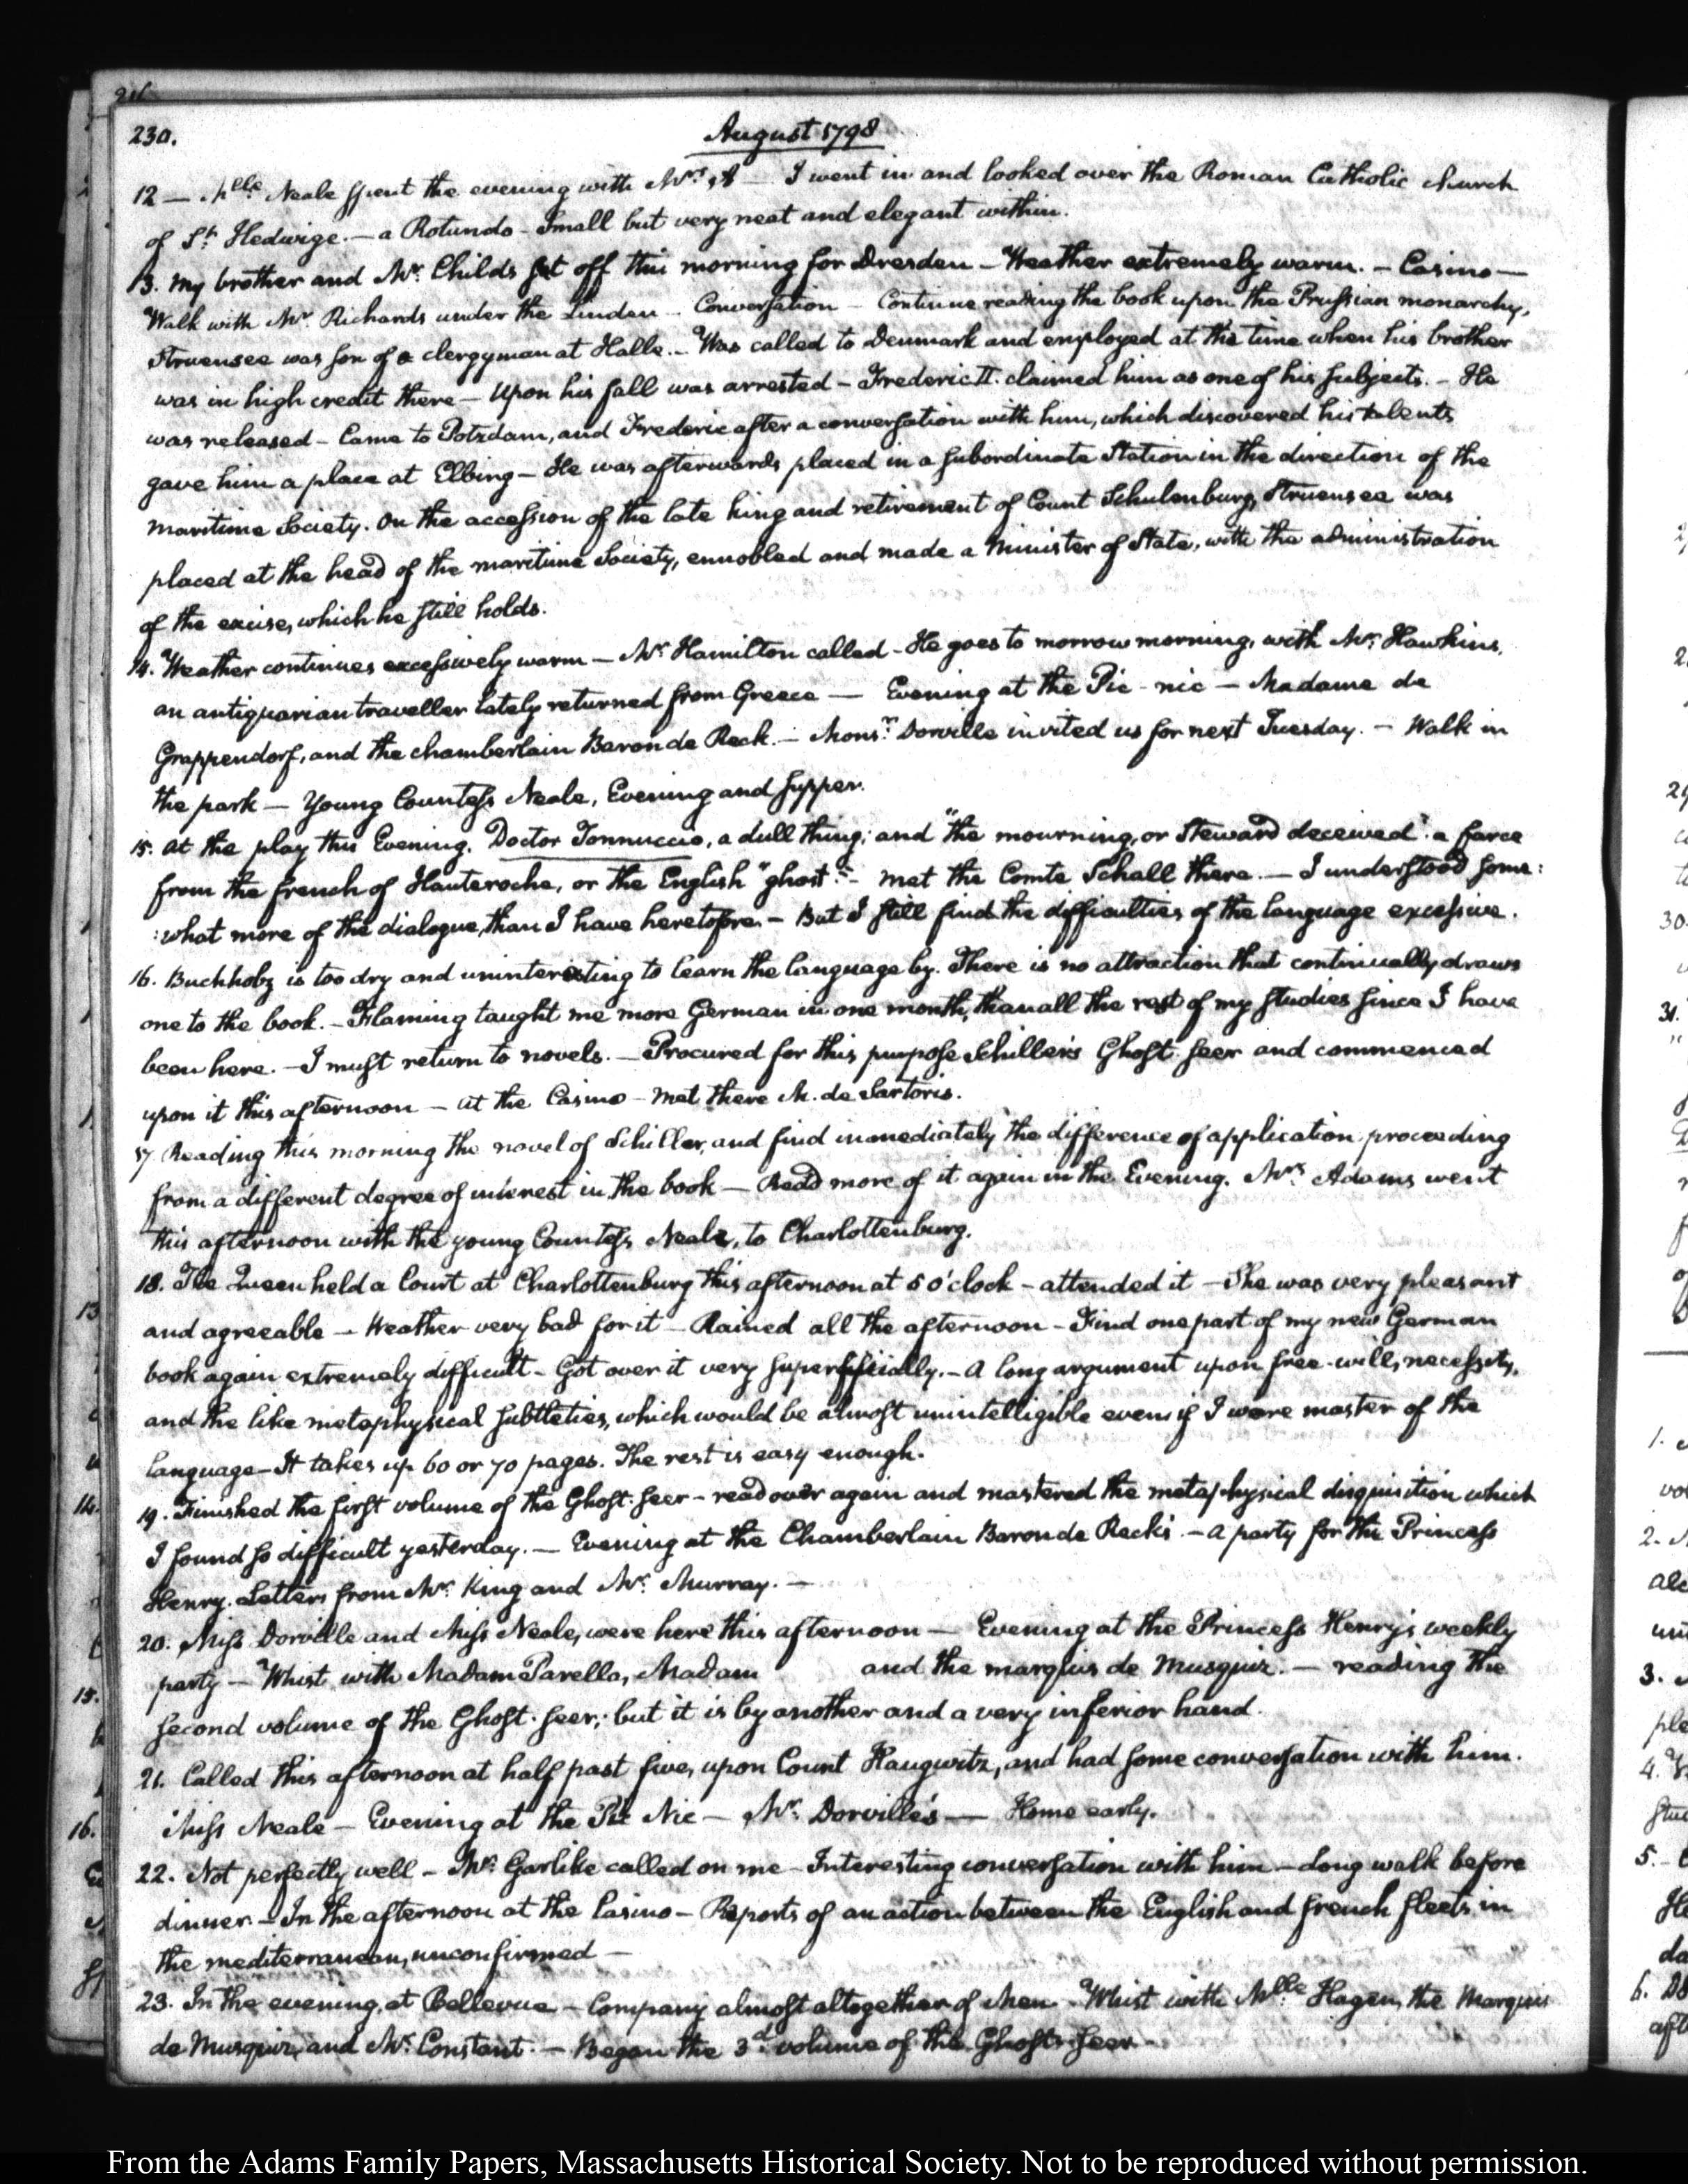 230.
August 1798
12 — Mlle. Neale spent the evening with Mrs. A — I went in and looked over the Roman Catholic church
of St. Hedwige. — a Rotundo - Small but very neat and elegant within.
13. My brother and Mr. Childs set off this morning for Dresden — Weather extremely warm. — Casino —
Walk with Mr. Richards under the Linden — Conversation — Continue reading the book upon the Prussian monarchy,
Struensee was son of a clergyman at Halle. — Was called to Denmark and employed at the time when his brother
was in high credit there — Upon his fall was arrested — Frederic II. claimed him as one of his subjects. — He
was released — Came to Potzdam, and Frederic after a conversation with him, which discovered his talents
gave him a place at Elbing — He was afterwards placed in a subordinate Station in the direction of the
maritime Society. On the accession of the late king and retirement of Count Schulenburg, Struensee was
placed at the head of the maritime Society, ennobled and made a Minister of State, with the administration
of the excise, which he still holds.
14. Weather continues excessively warm — Mr. Hamilton called — He goes to morrow morning, with Mr. Hawkins,
an antiquarian traveller lately returned from Greece — Evening at the Pic-nic — Madame de
Grappendorf, and the chamberlain Baron de Reck. — Monsr. Dorville invited us for next Tuesday. — Walk in
the park — Young Countess Neale, Evening and supper.
15. At the play this Evening. Doctor Tonnuccio, a dull thing; and "the mourning, or Steward deceived" a farce
from the french of Hauteroche, or the English "ghost". — met the Comte Schall there. — I understood some:
:what more of the dialogue, than I have heretofore. — But I still find the difficulties of the language excessive.
16. Buchholz is too dry and uninteresting to learn the language by. There is no attraction that continually draws
one to the book. — Flaming taught me more German in one month, than all the rest of my studies since I have
been here. — I must return to novels. — Procured for this purpose Schiller's Ghost-seer and commenced
upon it this afternoon — at the Casino — met there M. de Sartoris.
17. Reading this morning the novel of Schiller, and find immediately the difference of application proceeding
from a different degree of interest in the book — Read more of it again in the Evening. Mrs. Adams went
this afternoon with the young Countess Neale, to Charlottenburg.
18. The Queen held a Court at Charlottenburg this afternoon at 5 o'clock — attended it — She was very pleasant
and agreeable — Weather very bad for it — Rained all the afternoon — Find one part of my new German
book again extremely difficult — Got over it very superficially. — A long argument upon free-will, necessity,
and the like metaphysical subtleties, which would be almost unintelligible even if I were master of the
language — It takes up 60 or 70 pages. The rest is easy enough.
19. Finished the first volume of the Ghost-seer — read over again and mastered the metaphysical disquisition which
I found so difficult yesterday. — Evening at the Chamberlain Baron de Reck's. — A party for the Princess
Henry. Letters from Mr. King and Mr. Murray. —
20. Miss Dorville and Miss Neale, were here this afternoon — Evening at the Princess Henry's weekly
party — Whist with Madam Parella, Madam and the marquis de Musquiz. — reading the
second volume of the Ghost-seer; but it is by another and a very inferior hand.
21. Called this afternoon at half past five, upon Count Haugwitz, and had some conversation with him.
Miss Neale — Evening at the Pic Nic — Mr. Dorville's — Home early.
22. Not perfectly well — Mr. Garlike called on me — Interesting conversation with him — Long walk before
dinner. — In the afternoon at the Casino — Reports of an action between the English and french fleets in
the mediterranean, unconfirmed —
23. In the evening, at Bellevue — Company almost altogether of Men — Whist with Mlle. Hagen, the Marquis
de Musquiz, and Mr. Constant. — Began the 3d. volume of the Ghost-seer —
From the Adams Family Papers, Massachusetts Historical Society. Not to be reproduced without permission.